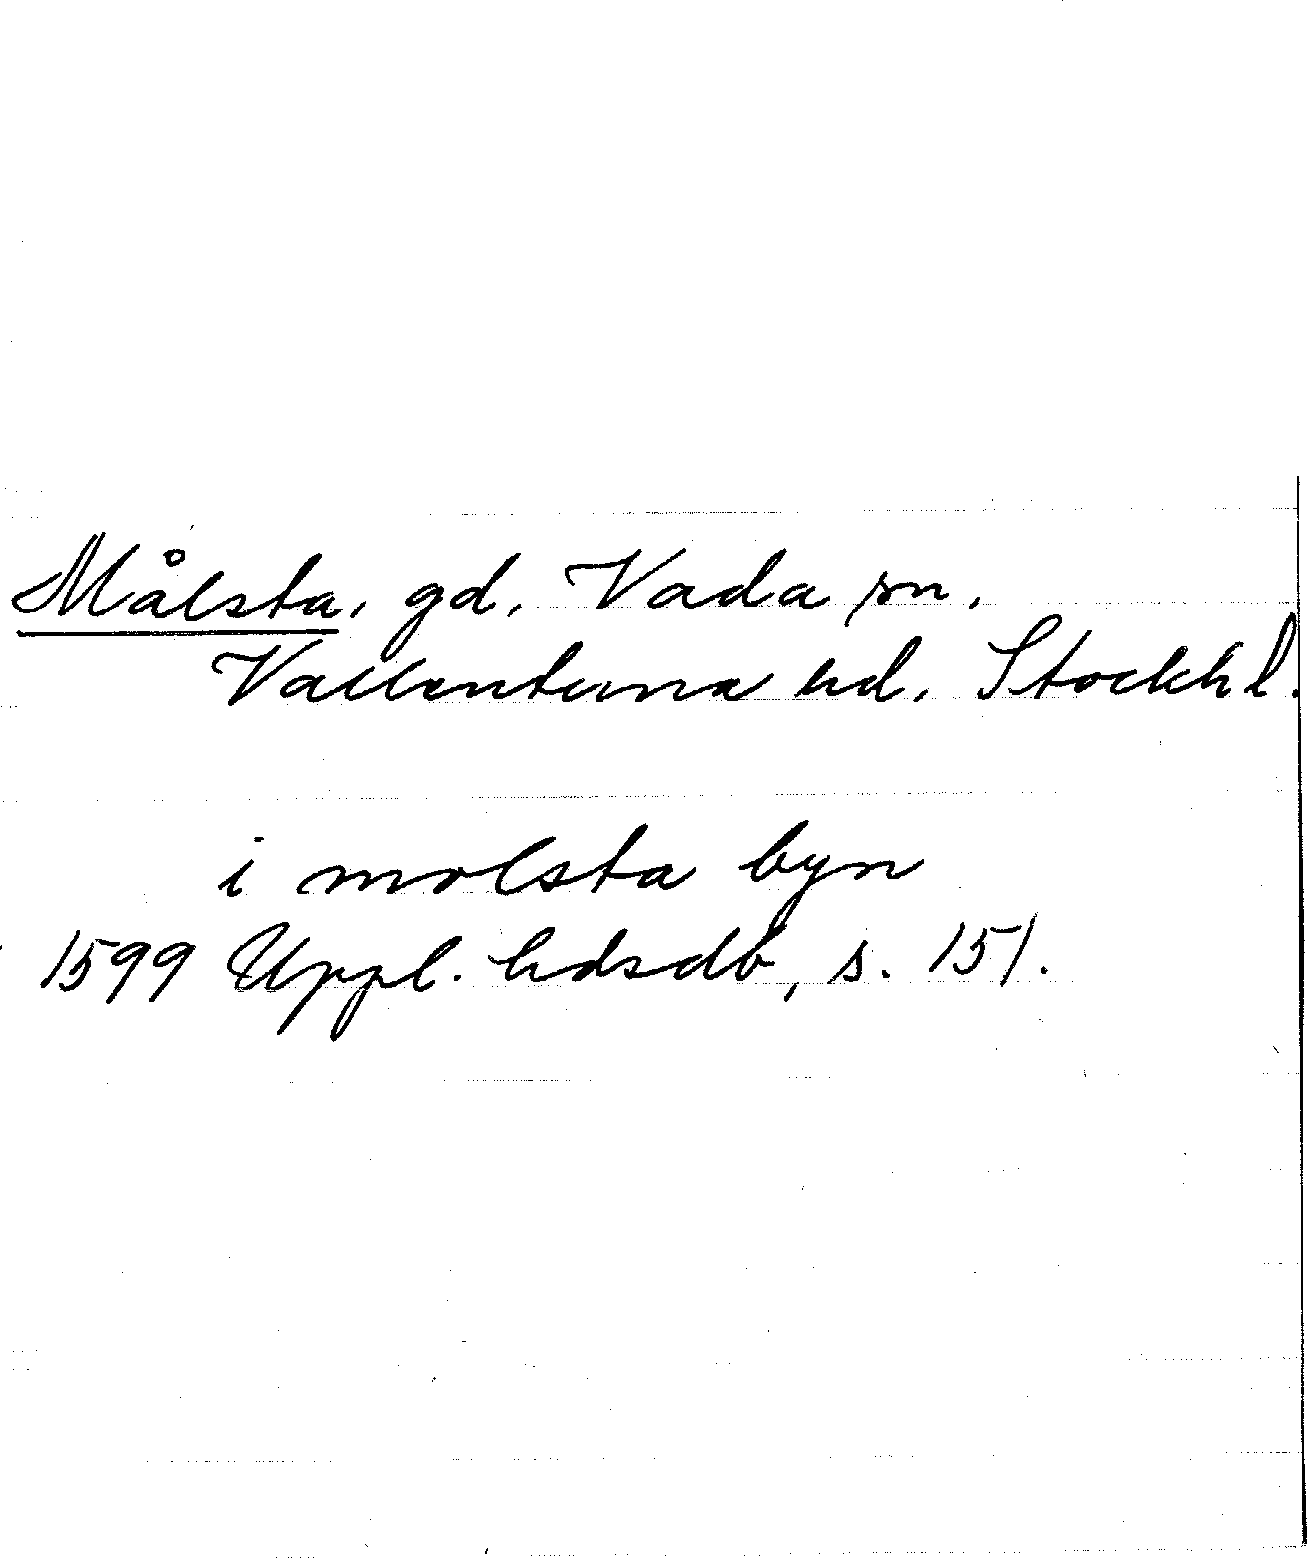 Målsta, gd, Vada sn,
Vallentuna hd, Stockh l.
i molsta byn
1599 Uppl. hdsdb, s. 151.